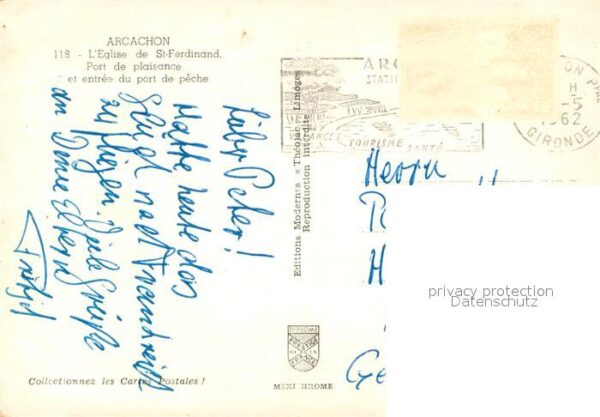 ARCACHON
118 - L'Eglise de St-Ferdinand,
Port de plaisance
et entrée du port de pêche
Lieber Peter!
Hatte heute das
Glück nach Frankreich
zu fliegen. Viele Grüße
an Deine Eltern
Editions Modernes « Théojac » Limoges
Reproduction Interdite
ARC
STATI
TOURISME
SANTÉ
ON
H
-5
1962
GIRONDE
Herrn
privacy protection
Datenschutz
DIPLOME
PRESTIGE
DE LA
FRANCE
Collectionnez les Cartes Postales !
MEXICHROME